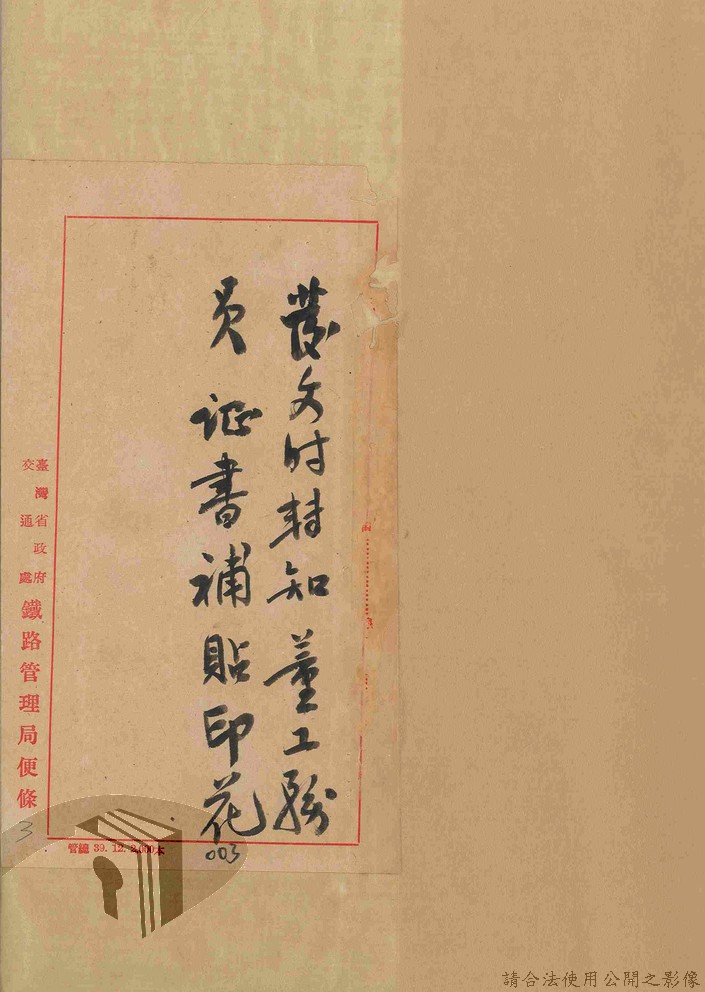 發文时轉知董工務
員证書補貼印花
臺灣省政府
交通處
鐵路管理局便條
3
管總 39. 12. 2,000本
003
請合法使用公開之影像